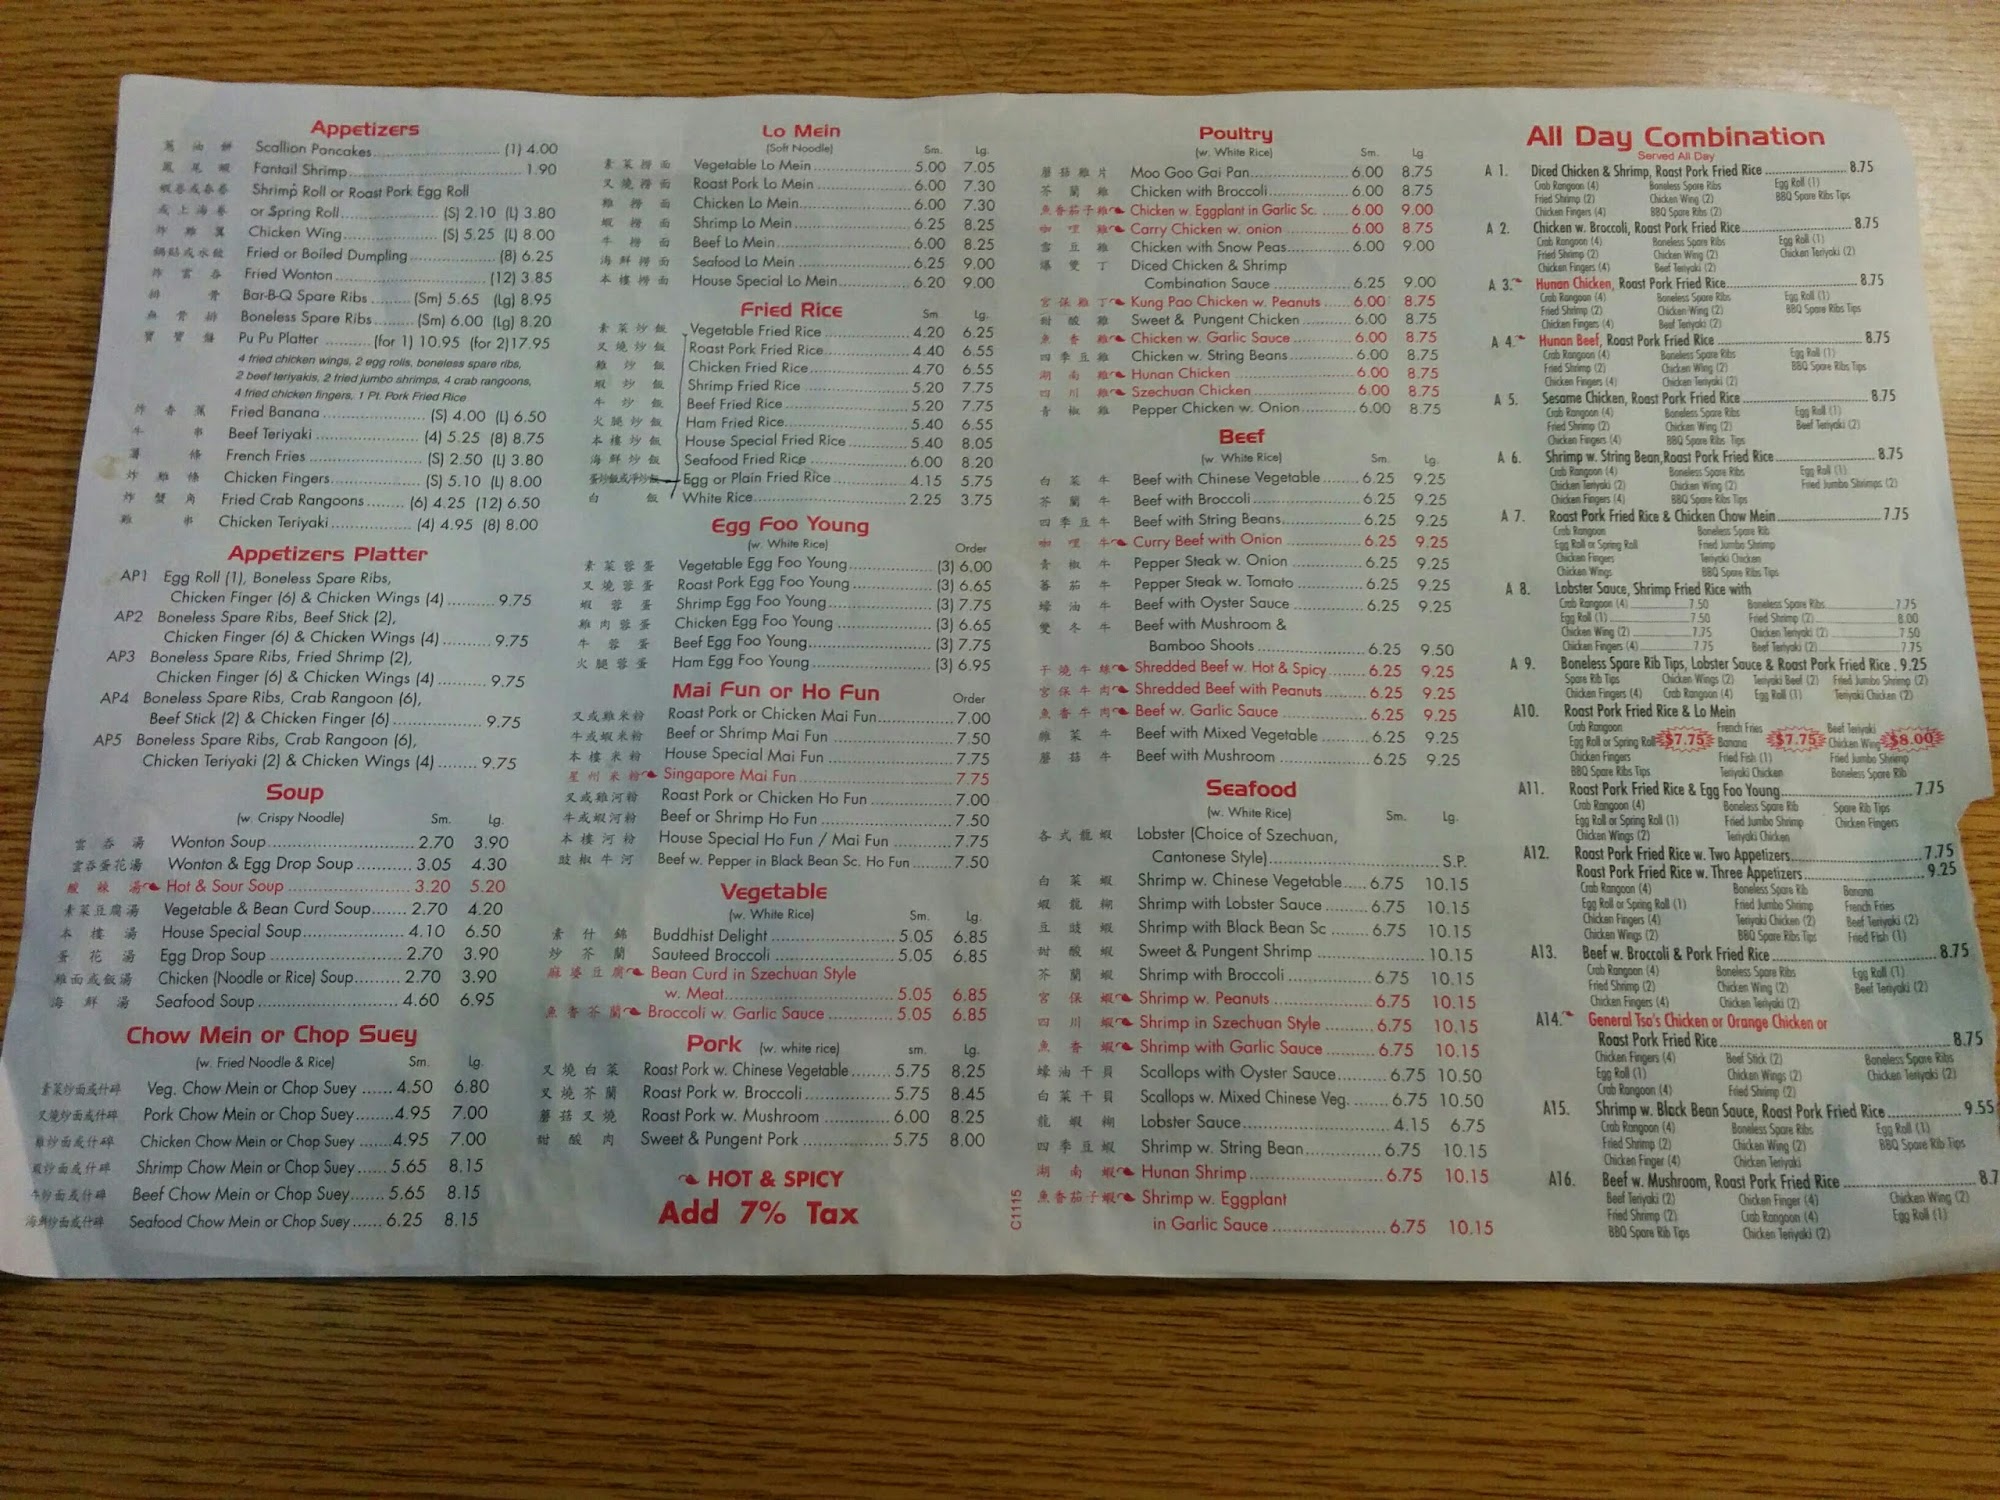 Appetizers
蔥油餅 Scallion Pancakes (1) 4.00
鳳尾蝦 Fantail Shrimp 1.90
蝦卷或春卷 Shrimp Roll or Roast Pork Egg Roll
或上海卷 or Spring Roll (S) 2.10 (L) 3.80
炸雞翼 Chicken Wing (S) 5.25 (L) 8.00
鍋貼或水餃 Fried or Boiled Dumpling (8) 6.25
炸雲吞 Fried Wonton (12) 3.85
排骨 Bar-B-Q Spare Ribs (Sm) 5.65 (Lg) 8.95
無骨排 Boneless Spare Ribs (Sm) 6.00 (Lg) 8.20
寶寶盤 Pu Pu Platter (for 1) 10.95 (for 2) 17.95
4 fried chicken wings, 2 egg rolls, boneless spare ribs,
2 beef teriyakis, 2 fried jumbo shrimps, 4 crab rangoons,
4 fried chicken fingers, 1 Pt. Pork Fried Rice
炸香蕉 Fried Banana (S) 4.00 (L) 6.50
牛串 Beef Teriyaki (4) 5.25 (8) 8.75
薯條 French Fries (S) 2.50 (L) 3.80
炸雞條 Chicken Fingers (S) 5.10 (L) 8.00
炸蟹角 Fried Crab Rangoons (6) 4.25 (12) 6.50
雞串 Chicken Teriyaki (4) 4.95 (8) 8.00
Appetizers Platter
AP1 Egg Roll (1), Boneless Spare Ribs,
Chicken Finger (6) & Chicken Wings (4) 9.75
AP2 Boneless Spare Ribs, Beef Stick (2),
Chicken Finger (6) & Chicken Wings (4) 9.75
AP3 Boneless Spare Ribs, Fried Shrimp (2),
Chicken Finger (6) & Chicken Wings (4) 9.75
AP4 Boneless Spare Ribs, Crab Rangoon (6),
Beef Stick (2) & Chicken Finger (6) 9.75
AP5 Boneless Spare Ribs, Crab Rangoon (6),
Chicken Teriyaki (2) & Chicken Wings (4) 9.75
Soup
(w. Crispy Noodle) Sm. Lg.
雲吞湯 Wonton Soup 2.70 3.90
雲吞蛋花湯 Wonton & Egg Drop Soup 3.05 4.30
酸辣湯 Hot & Sour Soup 3.20 5.20
素菜豆腐湯 Vegetable & Bean Curd Soup 2.70 4.20
本樓湯 House Special Soup 4.10 6.50
蛋花湯 Egg Drop Soup 2.70 3.90
雞面或飯湯 Chicken (Noodle or Rice) Soup 2.70 3.90
海鮮湯 Seafood Soup 4.60 6.95
Chow Mein or Chop Suey
(w. Fried Noodle & Rice) Sm. Lg.
素菜炒面或什碎 Veg. Chow Mein or Chop Suey 4.50 6.80
叉燒炒面或什碎 Pork Chow Mein or Chop Suey 4.95 7.00
雞炒面或什碎 Chicken Chow Mein or Chop Suey 4.95 7.00
蝦炒面或什碎 Shrimp Chow Mein or Chop Suey 5.65 8.15
牛炒面或什碎 Beef Chow Mein or Chop Suey 5.65 8.15
海鮮炒面或什碎 Seafood Chow Mein or Chop Suey 6.25 8.15
Lo Mein
(Soft Noodle) Sm. Lg.
素菜撈面 Vegetable Lo Mein 5.00 7.05
叉燒撈面 Roast Pork Lo Mein 6.00 7.30
雞撈面 Chicken Lo Mein 6.00 7.30
蝦撈面 Shrimp Lo Mein 6.25 8.25
牛撈面 Beef Lo Mein 6.00 8.25
海鮮撈面 Seafood Lo Mein 6.25 9.00
本樓撈面 House Special Lo Mein 6.20 9.00
Fried Rice Sm. Lg.
素菜炒飯 Vegetable Fried Rice 4.20 6.25
叉燒炒飯 Roast Pork Fried Rice 4.40 6.55
雞炒飯 Chicken Fried Rice 4.70 6.55
蝦炒飯 Shrimp Fried Rice 5.20 7.75
牛炒飯 Beef Fried Rice 5.20 7.75
火腿炒飯 Ham Fried Rice 5.40 6.55
本樓炒飯 House Special Fried Rice 5.40 8.05
海鮮炒飯 Seafood Fried Rice 6.00 8.20
蛋炒飯或淨炒飯 Egg or Plain Fried Rice 4.15 5.75
白飯 White Rice 2.25 3.75
Egg Foo Young
(w. White Rice) Order
素菜蓉蛋 Vegetable Egg Foo Young (3) 6.00
叉燒蓉蛋 Roast Pork Egg Foo Young (3) 6.65
蝦蓉蛋 Shrimp Egg Foo Young (3) 7.75
雞肉蓉蛋 Chicken Egg Foo Young (3) 6.65
牛蓉蛋 Beef Egg Foo Young (3) 7.75
火腿蓉蛋 Ham Egg Foo Young (3) 6.95
Mai Fun or Ho Fun Order
叉或雞米粉 Roast Pork or Chicken Mai Fun 7.00
牛或蝦米粉 Beef or Shrimp Mai Fun 7.50
本樓米粉 House Special Mai Fun 7.75
星州米粉 Singapore Mai Fun 7.75
叉或雞河粉 Roast Pork or Chicken Ho Fun 7.00
牛或蝦河粉 Beef or Shrimp Ho Fun 7.50
本樓河粉 House Special Ho Fun / Mai Fun 7.75
豉椒牛河 Beef w. Pepper in Black Bean Sc. Ho Fun 7.50
Vegetable
(w. White Rice) Sm. Lg.
素什錦 Buddhist Delight 5.05 6.85
炒芥蘭 Sauteed Broccoli 5.05 6.85
麻婆豆腐 Bean Curd in Szechuan Style
w. Meat 5.05 6.85
魚香芥蘭 Broccoli w. Garlic Sauce 5.05 6.85
Pork (w. white rice) sm. Lg.
叉燒白菜 Roast Pork w. Chinese Vegetable 5.75 8.25
叉燒芥蘭 Roast Pork w. Broccoli 5.75 8.45
蘑菇叉燒 Roast Pork w. Mushroom 6.00 8.25
甜酸肉 Sweet & Pungent Pork 5.75 8.00
HOT & SPICY
Add 7% Tax
C1115
Poultry
(w. White Rice) Sm. Lg
蘑菇雞片 Moo Goo Gai Pan 6.00 8.75
芥蘭雞 Chicken with Broccoli 6.00 8.75
魚香茄子雞 Chicken w. Eggplant in Garlic Sc. 6.00 9.00
咖哩雞 Carry Chicken w. onion 6.00 8.75
雪豆雞 Chicken with Snow Peas 6.00 9.00
爆雙丁 Diced Chicken & Shrimp
Combination Sauce 6.25 9.00
宮保雞丁 Kung Pao Chicken w. Peanuts 6.00 8.75
甜酸雞 Sweet & Pungent Chicken 6.00 8.75
魚香雞 Chicken w. Garlic Sauce 6.00 8.75
四季豆雞 Chicken w. String Beans 6.00 8.75
湖南雞 Hunan Chicken 6.00 8.75
四川雞 Szechuan Chicken 6.00 8.75
青椒雞 Pepper Chicken w. Onion 6.00 8.75
Beef
(w. White Rice) Sm. Lg.
白菜牛 Beef with Chinese Vegetable 6.25 9.25
芥蘭牛 Beef with Broccoli 6.25 9.25
四季豆牛 Beef with String Beans 6.25 9.25
咖哩牛 Curry Beef with Onion 6.25 9.25
青椒牛 Pepper Steak w. Onion 6.25 9.25
蕃茄牛 Pepper Steak w. Tomato 6.25 9.25
蠔油牛 Beef with Oyster Sauce 6.25 9.25
雙冬牛 Beef with Mushroom &
Bamboo Shoots 6.25 9.50
干燒牛絲 Shredded Beef w. Hot & Spicy 6.25 9.25
宮保牛肉 Shredded Beef with Peanuts 6.25 9.25
魚香牛肉 Beef w. Garlic Sauce 6.25 9.25
雜菜牛 Beef with Mixed Vegetable 6.25 9.25
蘑菇牛 Beef with Mushroom 6.25 9.25
Seafood
(w. White Rice) Sm. Lg.
各式龍蝦 Lobster (Choice of Szechuan,
Cantonese Style) S.P.
白菜蝦 Shrimp w. Chinese Vegetable 6.75 10.15
蝦龍糊 Shrimp with Lobster Sauce 6.75 10.15
豆豉蝦 Shrimp with Black Bean Sc 6.75 10.15
甜酸蝦 Sweet & Pungent Shrimp 10.15
芥蘭蝦 Shrimp with Broccoli 6.75 10.15
宮保蝦 Shrimp w. Peanuts 6.75 10.15
四川蝦 Shrimp in Szechuan Style 6.75 10.15
魚香蝦 Shrimp with Garlic Sauce 6.75 10.15
蠔油干貝 Scallops with Oyster Sauce 6.75 10.50
白菜干貝 Scallops w. Mixed Chinese Veg. 6.75 10.50
龍蝦糊 Lobster Sauce 4.15 6.75
四季豆蝦 Shrimp w. String Bean 6.75 10.15
湖南蝦 Hunan Shrimp 6.75 10.15
魚香茄子蝦 Shrimp w. Eggplant
in Garlic Sauce 6.75 10.15
All Day Combination
Served All Day
A 1. Diced Chicken & Shrimp, Roast Pork Fried Rice 8.75
Crab Rangoon (4) Boneless Spare Ribs Egg Roll (1)
Fried Shrimp (2) Chicken Wing (2) BBQ Spare Ribs Tips
Chicken Fingers (4) BBQ Spare Ribs (2)
A 2. Chicken w. Broccoli, Roast Pork Fried Rice 8.75
Crab Rangoon (4) Boneless Spare Ribs Egg Roll (1)
Fried Shrimp (2) Chicken Wing (2) Chicken Teriyaki (2)
Chicken Fingers (4) Beef Teriyaki (2)
A 3. Hunan Chicken, Roast Pork Fried Rice 8.75
Crab Rangoon (4) Boneless Spare Ribs Egg Roll (1)
Fried Shrimp (2) Chicken Wing (2) BBQ Spare Ribs Tips
Chicken Fingers (4) Beef Teriyaki (2)
A 4. Hunan Beef, Roast Pork Fried Rice 8.75
Crab Rangoon (4) Boneless Spare Ribs Egg Roll (1)
Fried Shrimp (2) Chicken Wing (2) BBQ Spare Ribs Tips
Chicken Fingers (4) Chicken Teriyaki (2)
A 5. Sesame Chicken, Roast Pork Fried Rice 8.75
Crab Rangoon (4) Boneless Spare Ribs Egg Roll (1)
Fried Shrimp (2) Chicken Wing (2) Beef Teriyaki (2)
Chicken Fingers (4) BBQ Spare Ribs Tips
A 6. Shrimp w. String Bean, Roast Pork Fried Rice 8.75
Crab Rangoon (4) Boneless Spare Ribs Egg Roll (1)
Chicken Teriyaki (2) Chicken Wing (2) Fried Jumbo Shrimps (2)
Chicken Fingers (4) BBQ Spare Ribs Tips
A 7. Roast Pork Fried Rice & Chicken Chow Mein 7.75
Crab Rangoon Boneless Spare Rib
Egg Roll or Spring Roll Fried Jumbo Shrimp
Chicken Fingers Teriyaki Chicken
Chicken Wings BBQ Spare Ribs Tips
A 8. Lobster Sauce, Shrimp Fried Rice with
Crab Rangoon (4) 7.50 Boneless Spare Ribs 7.75
Egg Roll (1) 7.50 Fried Shrimp (2) 8.00
Chicken Wing (2) 7.75 Chicken Teriyaki (2) 7.50
Chicken Fingers (4) 7.75 Beef Teriyaki (2) 7.75
A 9. Boneless Spare Rib Tips, Lobster Sauce & Roast Pork Fried Rice 9.25
Spare Rib Tips Chicken Wings (2) Teriyaki Beef (2) Fried Jumbo Shrimp (2)
Chicken Fingers (4) Crab Rangoon (4) Egg Roll (1) Teriyaki Chicken (2)
A10. Roast Pork Fried Rice & Lo Mein
Crab Rangoon French Fries Beef Teriyaki
Egg Roll or Spring Roll $7.75 Banana $7.75 Chicken Wing $8.00
Chicken Fingers Fried Fish (1) Fried Jumbo Shrimp
BBQ Spare Ribs Tips Teriyaki Chicken Boneless Spare Rib
A11. Roast Pork Fried Rice & Egg Foo Young 7.75
Crab Rangoon (4) Boneless Spare Rib Spare Rib Tips
Egg Roll or Spring Roll (1) Fried Jumbo Shrimp Chicken Fingers
Chicken Wings (2) Teriyaki Chicken
A12. Roast Pork Fried Rice w. Two Appetizers 7.75
Roast Pork Fried Rice w. Three Appetizers 9.25
Crab Rangoon (4) Boneless Spare Rib Banana
Egg Roll or Spring Roll (1) Fried Jumbo Shrimp French Fries
Chicken Fingers (4) Teriyaki Chicken (2) Beef Teriyaki (2)
Chicken Wings (2) BBQ Spare Ribs Tips Fried Fish (1)
A13. Beef w. Broccoli & Pork Fried Rice 8.75
Crab Rangoon (4) Boneless Spare Ribs Egg Roll (1)
Fried Shrimp (2) Chicken Wing (2) Beef Teriyaki (2)
Chicken Fingers (4) Chicken Teriyaki (2)
A14. General Tso's Chicken or Orange Chicken or
Roast Pork Fried Rice 8.75
Chicken Fingers (4) Beef Stick (2) Boneless Spare Ribs
Egg Roll (1) Chicken Wings (2) Chicken Teriyaki (2)
Crab Rangoon (4) Fried Shrimp (2)
A15. Shrimp w. Black Bean Sauce, Roast Pork Fried Rice 9.55
Crab Rangoon (4) Boneless Spare Ribs Egg Roll (1)
Fried Shrimp (2) Chicken Wing (2) BBQ Spare Rib Tips
Chicken Finger (4) Chicken Teriyaki
A16. Beef w. Mushroom, Roast Pork Fried Rice 8.7
Beef Teriyaki (2) Chicken Finger (4) Chicken Wing (2)
Fried Shrimp (2) Crab Rangoon (4) Egg Roll (1)
BBQ Spare Rib Tips Chicken Teriyaki (2)